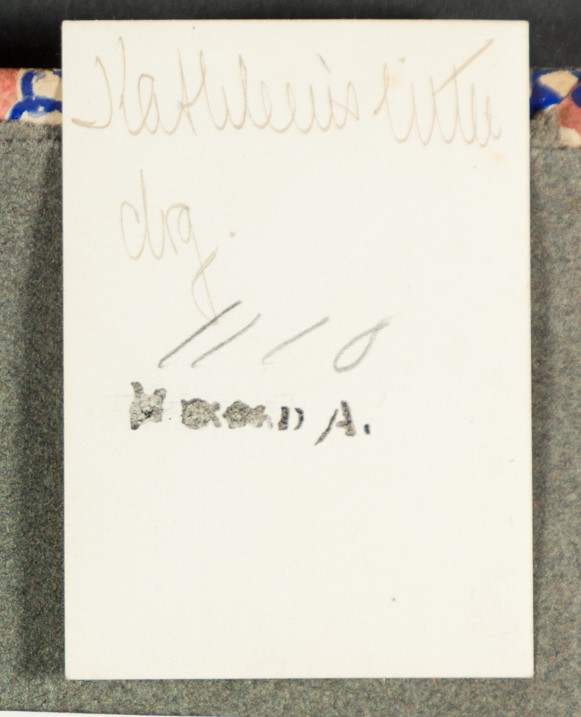 Kathleen's little
dog.
11-8
A.